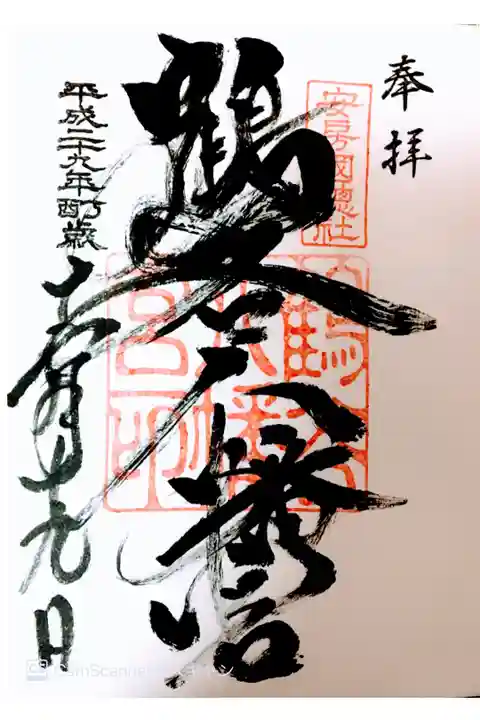 奉拝
安房國總社
鶴谷八幡宮
鶴谷
八幡
宮印
平成二十九年丁酉歳
十九日
CS CamScanner